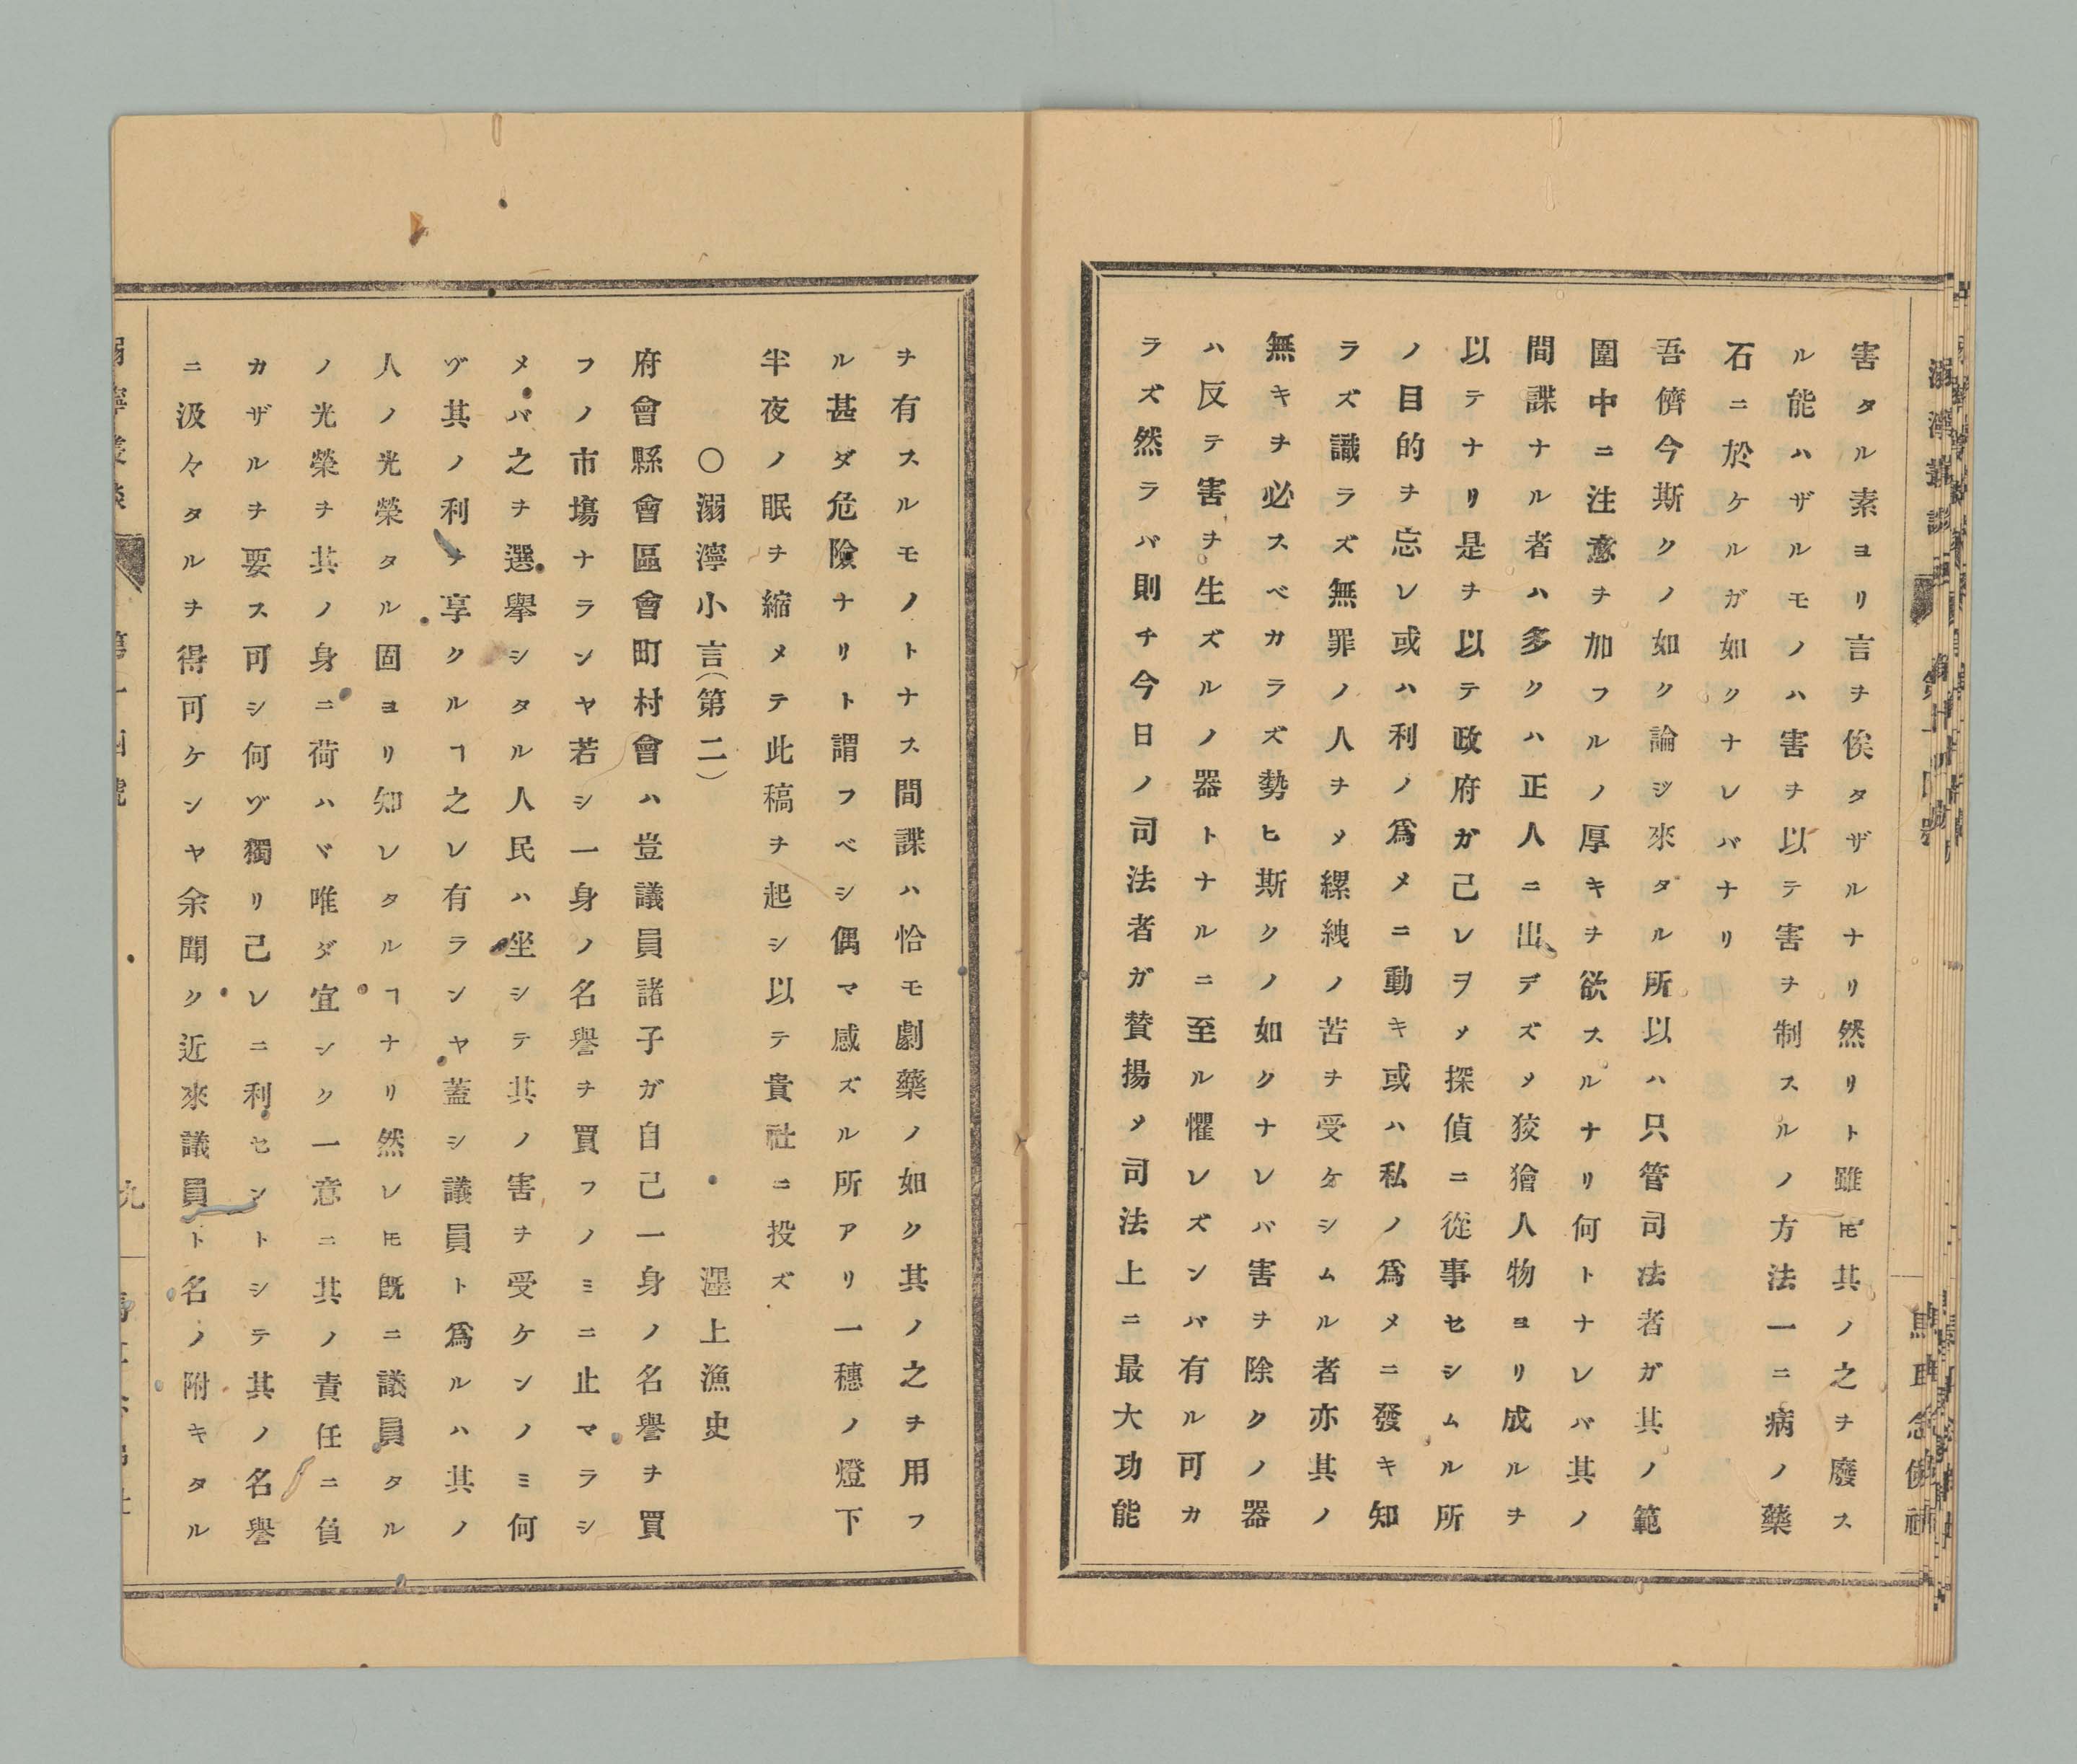 害タル素ヨリ言ヲ俟タザルナリ然リト雖𪜈其ノ之ヲ廢ス
ル能ハザルモノハ害ヲ以テ害ヲ制スルノ方法一ニ病ノ藥
石ニ於ケルガ如クナレバナリ
吾儕今斯クノ如ク論ジ來タル所以ハ只管司法者ガ其ノ範
圍中ニ注意ヲ加フルノ厚キヲ欲スルナリ何トナレバ其ノ
間諜ナル者ハ多クハ正人ニ出デズメ狡獪人物ヨリ成ルヲ
以テナリ是ヲ以テ政府ガ己レヲメ探偵ニ從事セシムル所
ノ目的ヲ忘レ或ハ利ノ爲メニ動キ或ハ私ノ爲メニ發キ知
ラズ識ラズ無罪ノ人ヲメ縲絏ノ苦ヲ受ケシムル者亦其ノ
無キヲ必スベカラズ勢ヒ斯クノ如クナレバ害ヲ除クノ器
ハ反テ害ヲ生ズルノ器トナルニ至ル懼レズンバ有ル可カ
ラズ然ラバ則チ今日ノ司法者ガ賛揚メ司法上ニ最大功能
ヲ有スルモノトナス間諜ハ恰モ劇藥ノ如ク其ノ之ヲ用フ
ル甚ダ危險ナリト謂フベシ偶マ感ズル所アリ一穗ノ燈下
半夜ノ眠ヲ縮メテ此稿ヲ起シ以テ貴社ニ投ズ
〇溺濘小言（第二） 濹上漁史
府會縣會區會町村會ハ豈議員諸子ガ自己一身ノ名譽ヲ買
フノ市塲ナランヤ若シ一身ノ名譽ヲ買フノミニ止マラシ
メバ之ヲ選擧シタル人民ハ坐シテ其ノ害ヲ受ケンノミ何
ヅ其ノ利ヲ享クルヿ之レ有ランヤ蓋シ議員ト爲ルハ其ノ
人ノ光榮タル固ヨリ知レタルヿナリ然レ𪜈既ニ議員タル
ノ光榮ヲ其ノ身ニ荷ハヾ唯ダ宜シク一意ニ其ノ責任ニ負
カザルヲ要ス可シ何ヅ獨リ己レニ利セントシテ其ノ名譽
ニ汲々タルヲ得可ケンヤ余聞ク近來議員ト名ノ附キタル
九